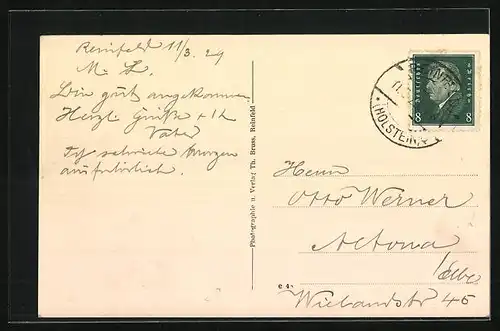 Reinfeld 11/3.29
M. L.
Bin gut angekommen
Herzl. Grüße + Ik
Vater
Ich schreibe morgen
ausführlich.
Photographie u. Verlag Th. Bruss, Reinfeld
Deutsches Reich
8 8
(HOLSTEIN)
Herrn
Otto Werner
Altona
/Elbe
Wielandstr 46